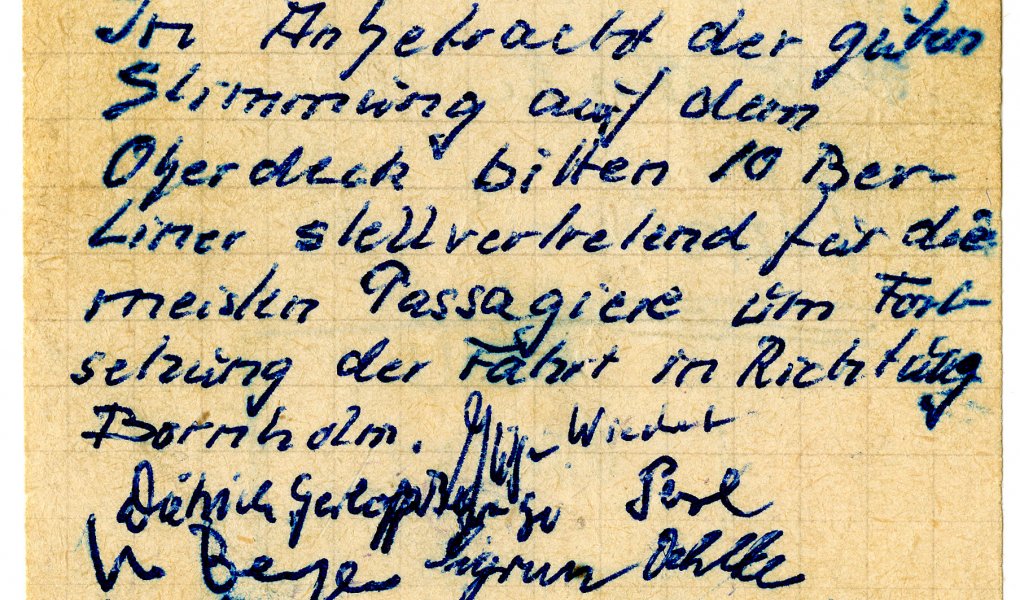 In Anbetracht der guten
Stimmung auf dem
Oberdeck bitten 10 Ber-
liner stellvertretend für die
meisten Passagiere um Fort-
setzung der Fahrt in Richtung
Bornholm. Wiedut
Dietrich Gerloff Perl
Berger Sigrun Oehlke